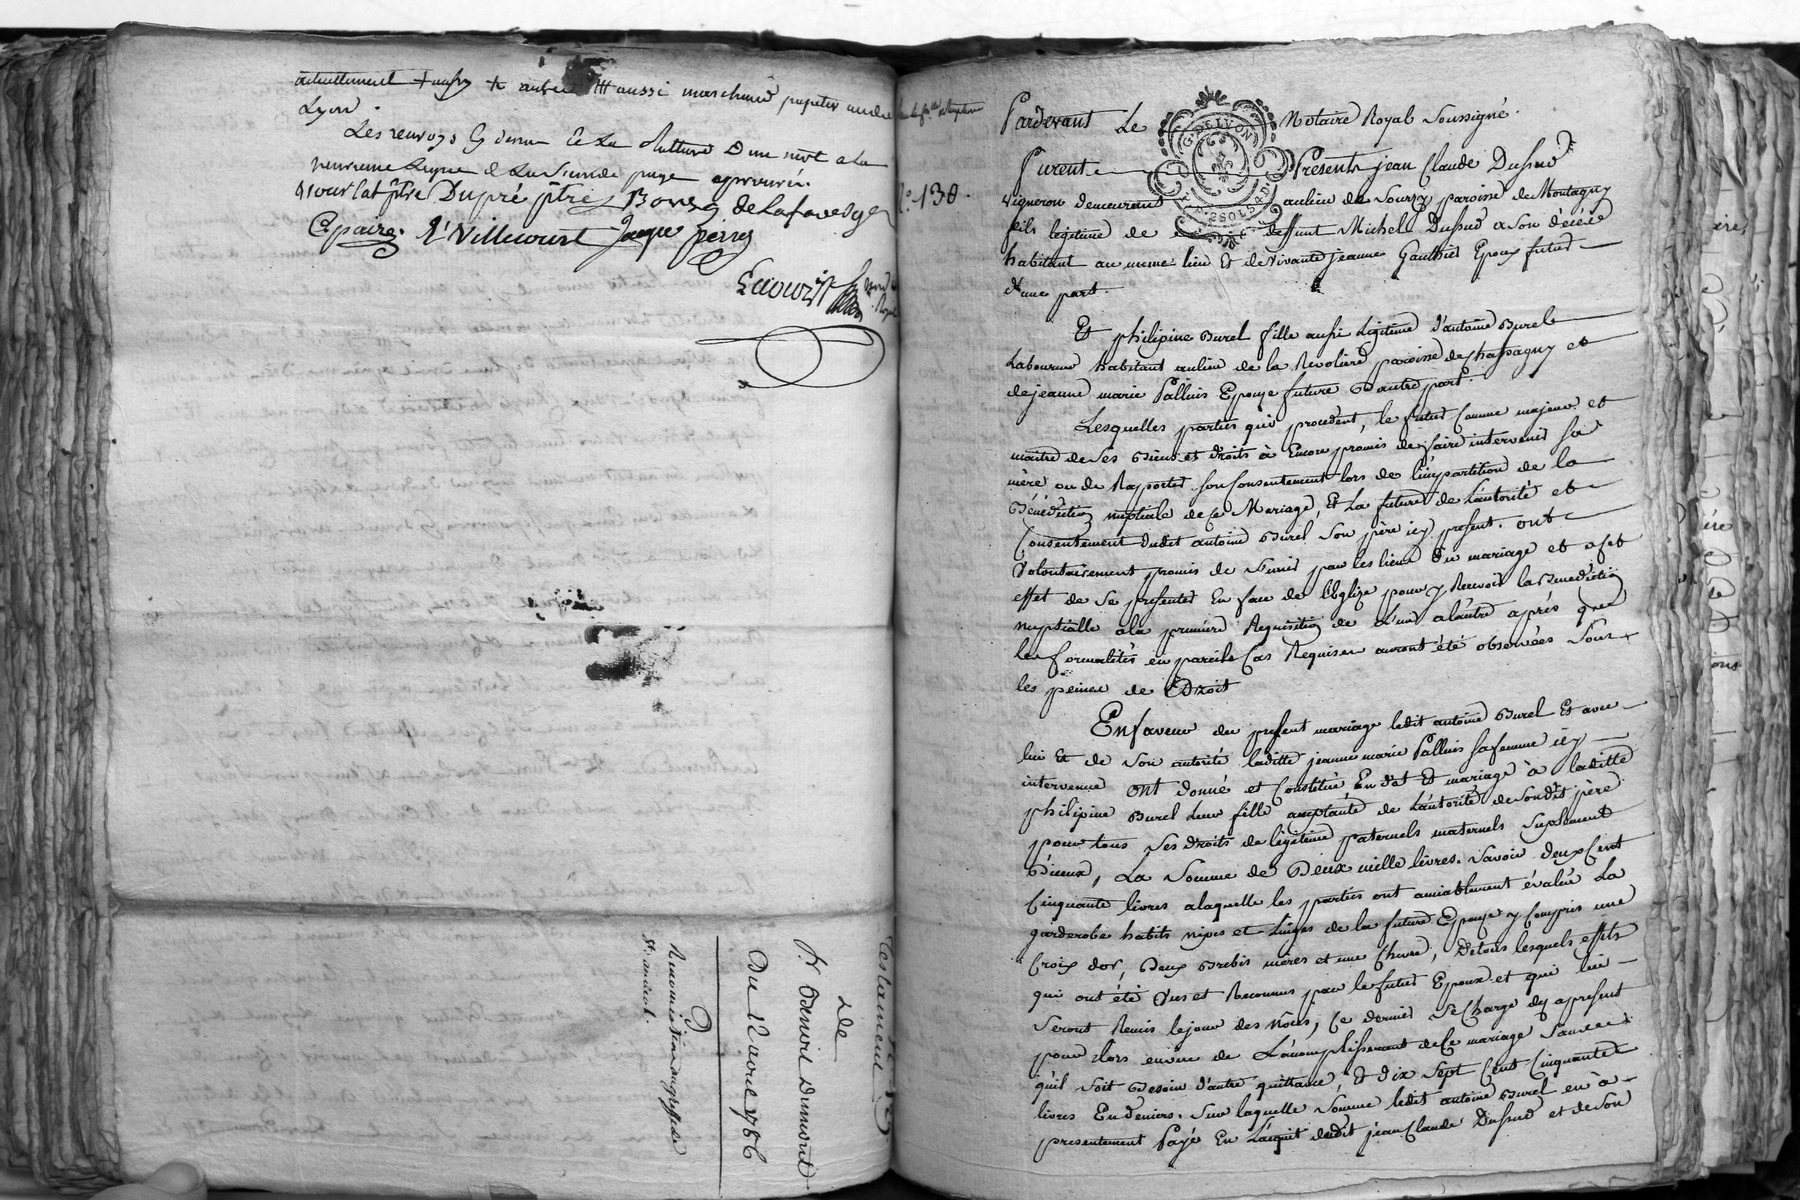 actuellement aussi marchand papetier
Lyon.
Les renvoys Cy dessus Et La rature D'un mot a La
neuvieme Ligne de La Seconde page approuvés.
Dupré ptre Bourg de Lafaverge
Cpaire. D'Villecourt Jaque perret
Testament
De
Sr Benoit Dumont
Du 12 aout 1786
N.o 130.
Pardevant Le Notaire Royal Soussigné.
G. DE LYON
2 SOLS 4 D
Furent Présents jean Claude Dufud
vigneron demeurant au lieu de Sourzy paroisse de Montagny
fils légitime de deffunt Michel Dufud a Son décéd
habitant au meme lieu Et de vivante jeanne Gauthier Epoux futur
d'une part.
Et philipine Burel fille aussi légitime d'antoine Burel
Laboureur habitant au lieu de la Revoliere paroisse de Chassagny et
de jeanne marie Palluis Epouse future D'autre part.
Lesquelles parties qui procedent, le futur Comme majeur et
maitre de Ses Biens et droits à Encore promis de faire intervenir Sa
mère ou de Rapporter Son Consentement lors de l'impartition de la
Bénédiction nuptiale de Ce Mariage, Et La future de L'autorité et
Consentement dudit antoine Burel Son père icy présent. ont
Volontairement promis de S'unir par les liens du mariage et a cet
effet de Se présenter En face de L'Eglize pour y Recevoir la Benediction
nuptialle a la première Requisition de L'un a l'autre après que
les formalités en pareils Cas Requises auront été observées Sous
les peines de Droit
En faveur du présent mariage ledit antoine Burel Et avec
lui Et de Son autorité laditte jeanne marie Palluis Sa femme icy
intervenue ont donné et Constitué En dot Et mariage à laditte
philipine Burel Leur fille acceptante de L'autorité de Sondit père
pour tous Ses droits de légitime paternels maternels Suplement
D'iceux, La Somme de Deux mille livres. Savoir deux Cent
Cinquante livres a laquelle les parties ont amiablement évalué La
garderobe habits nipes et Linges de la future Epouse y Compris une
Croix d'or, Deux Brebis mères et une Chevre, De tous lesquels effets
qui ont été Vus et Reconnus par le futur Epoux et qui lui
Seront Remis le jour des Nôces, Ce dernier Se Charge des a present
pour lors en vue de L'accomplissement de Ce mariage Sans
qu'il Soit Besoin d'autre quittance, Et dix Sept Cent Cinquante
livres En deniers. Sur laquelle Somme ledit antoine Burel en à
presentement Payé En L'acquit dudit jean Claude Dufud et de Son